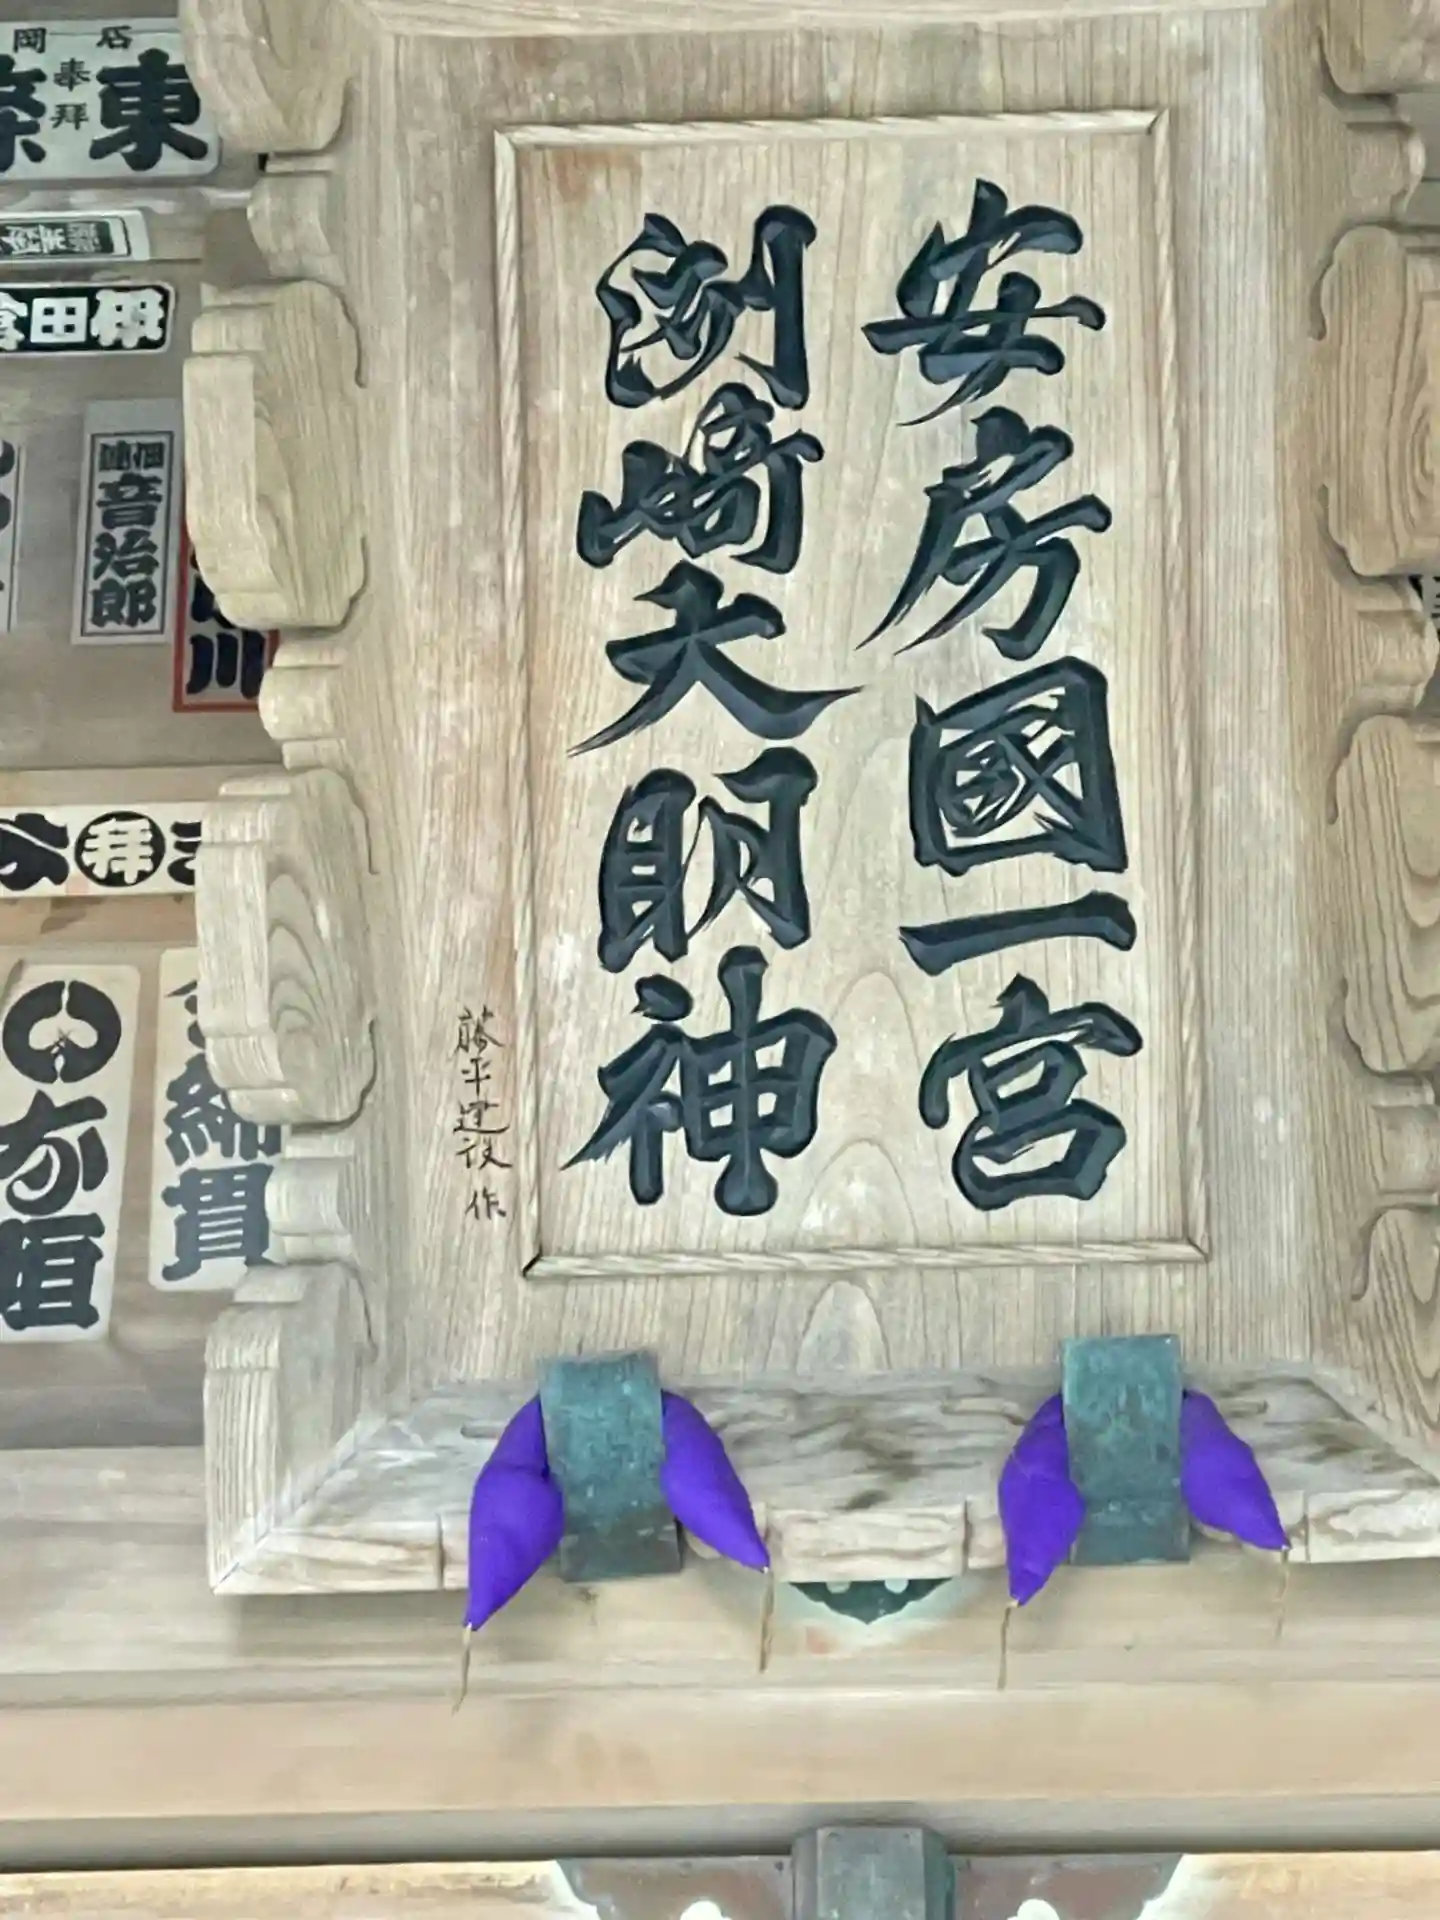 安房國一宮
洲崎大明神
藤平建設 作
石岡
奉拝
東
伊田倉
音治郎
川
拝
綿貫